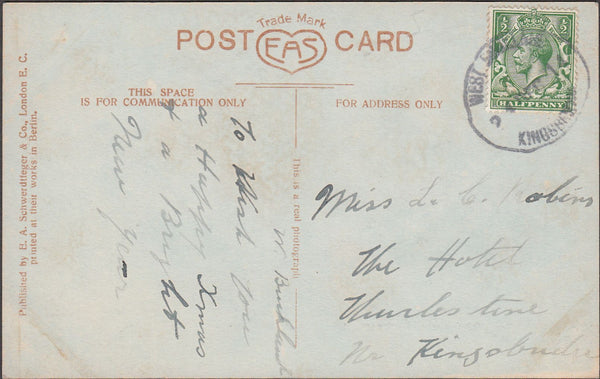 Trade Mark
POST EAS CARD
THIS SPACE
IS FOR COMMUNICATION ONLY
FOR ADDRESS ONLY
½ ½
HALFPENNY
WEST
KINGSBRIDGE
To Wish You
a Happy Xmas
& a Bright
New Year
W. Buckland
Miss L. C. Robins
The Hotel
Thurlestone
Nr Kingsbridge
This is a real photograph
Published by E. A. Schwerdtfeger & Co., London E. C.
printed at their works in Berlin.